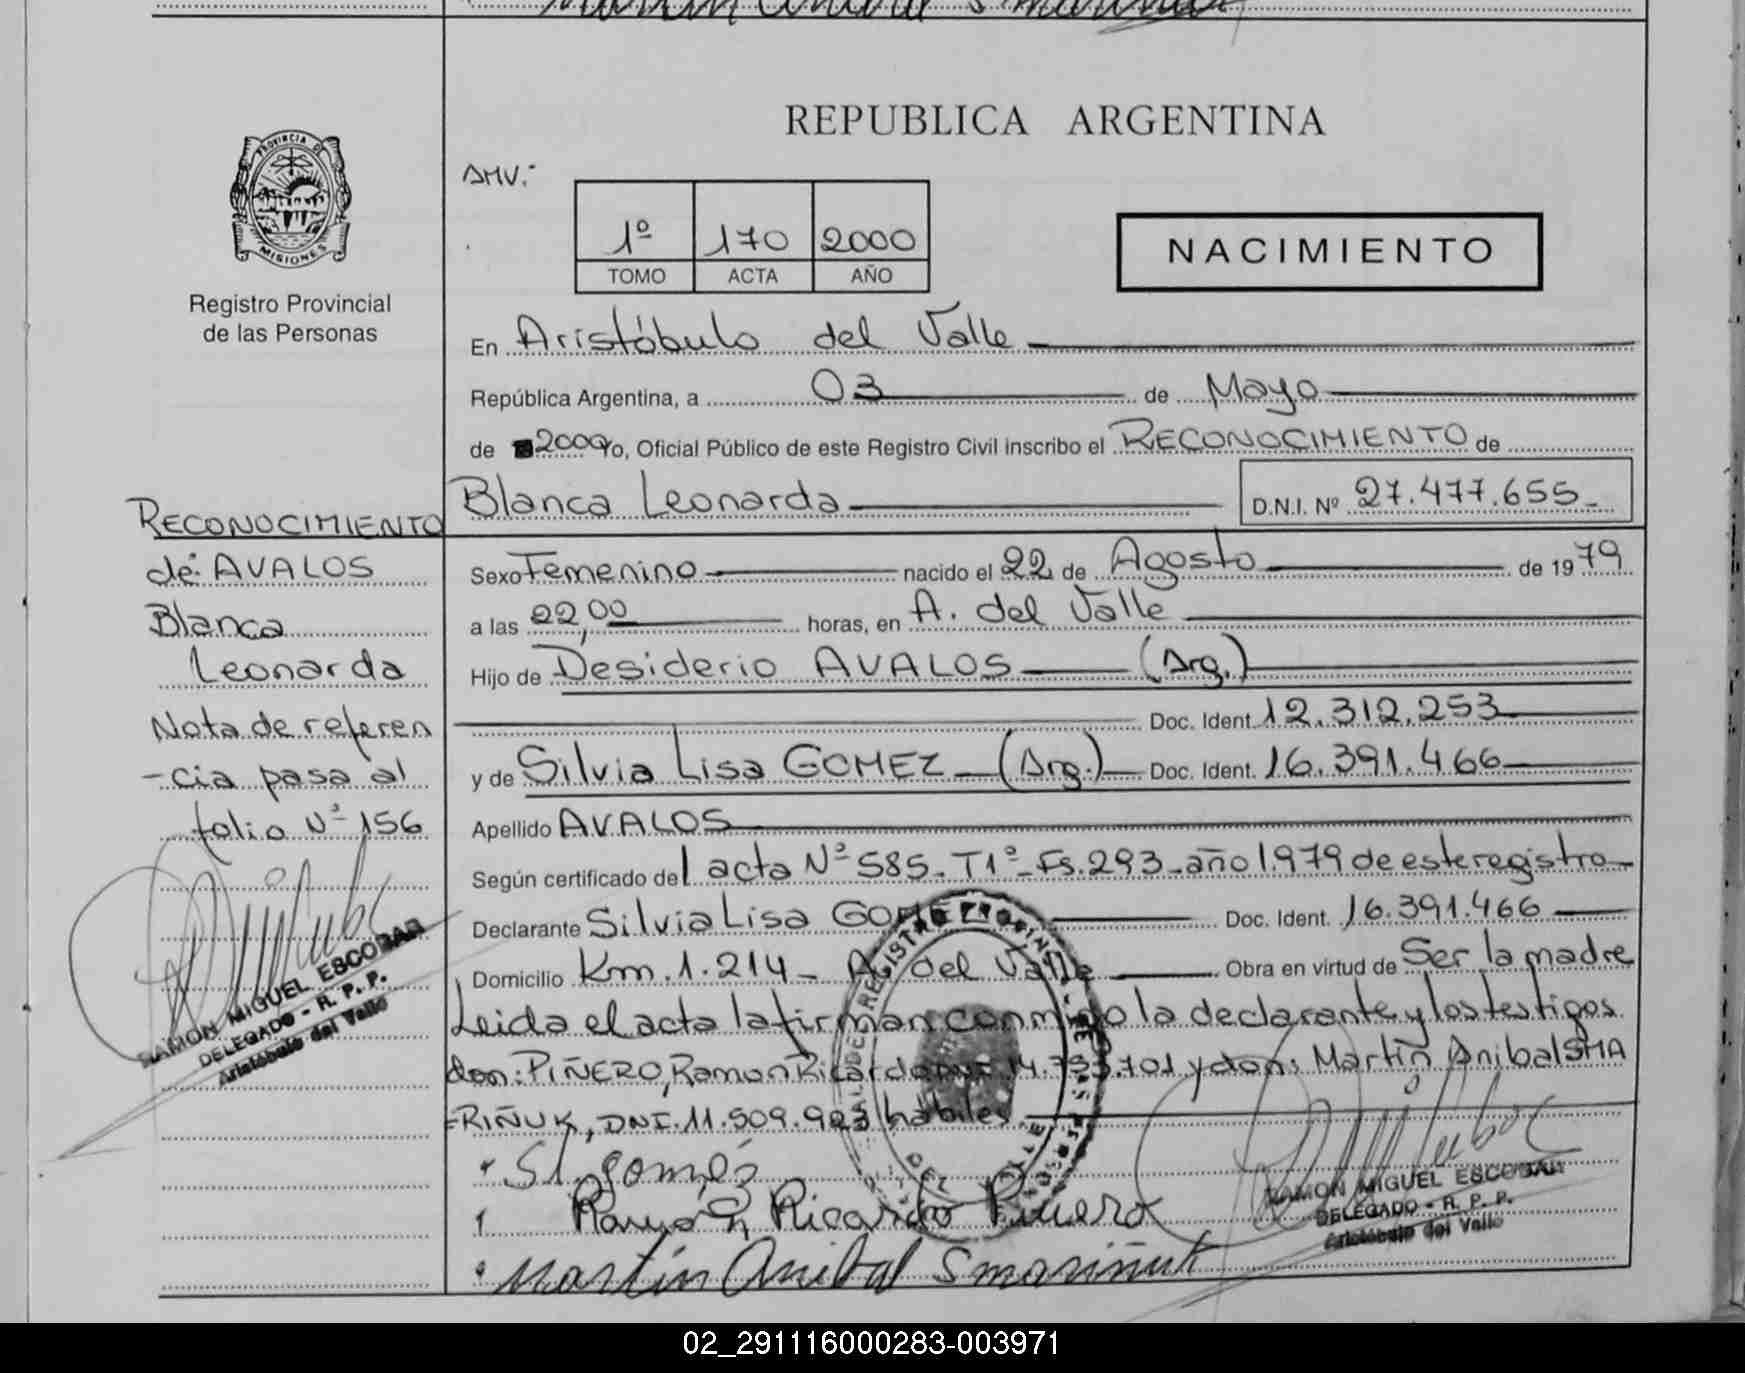 PROVINCIA DE
MISIONES
Registro Provincial
de las Personas
REPUBLICA ARGENTINA
AMV.-
1º 170 2000
TOMO ACTA AÑO
NACIMIENTO
En Aristóbulo del Valle
República Argentina, a 03 de Mayo
de 2000 yo, Oficial Público de este Registro Civil inscribo el RECONOCIMIENTO de
Blanca Leonarda D.N.I. Nº 27.477.655.-
Sexo Femenino nacido el 22 de Agosto de 1979
a las 22,00 horas, en A. del Valle
Hijo de Desiderio AVALOS (Arg.)
Doc. Ident. 12.312.253
y de Silvia Lisa GOMEZ (Arg.) Doc. Ident. 16.391.466
Apellido AVALOS
Según certificado del acta Nº 585- T1º- Fs.293-año 1979 de este registro
Declarante Silvia Lisa GOMEZ Doc. Ident. 16.391.466
Domicilio Km. 1.214- A. del Valle Obra en virtud de Ser la madre
Leida el acta la firman conmigo la declarante y los testigos
don: PIÑERO, Ramon Ricardo DNI 14.793.701 y don: Martin Anibal SMA
-RIÑUK, DNI.11.509.923 habiles.
S.L. gomes
Ramon Ricardo Piñero
Martín Anibal Smariñuk
RAMON MIGUEL ESCOBAR
DELEGADO - R. P. P.
Aristóbulo del Valle
RECONOCIMIENTO
de: AVALOS
Blanca
Leonarda
Nota de referen
-cia pasa al
folio Nº 156
RAMON MIGUEL ESCOBAR
DELEGADO - R. P. P.
Aristóbulo del Valle
02_291116000283-003971